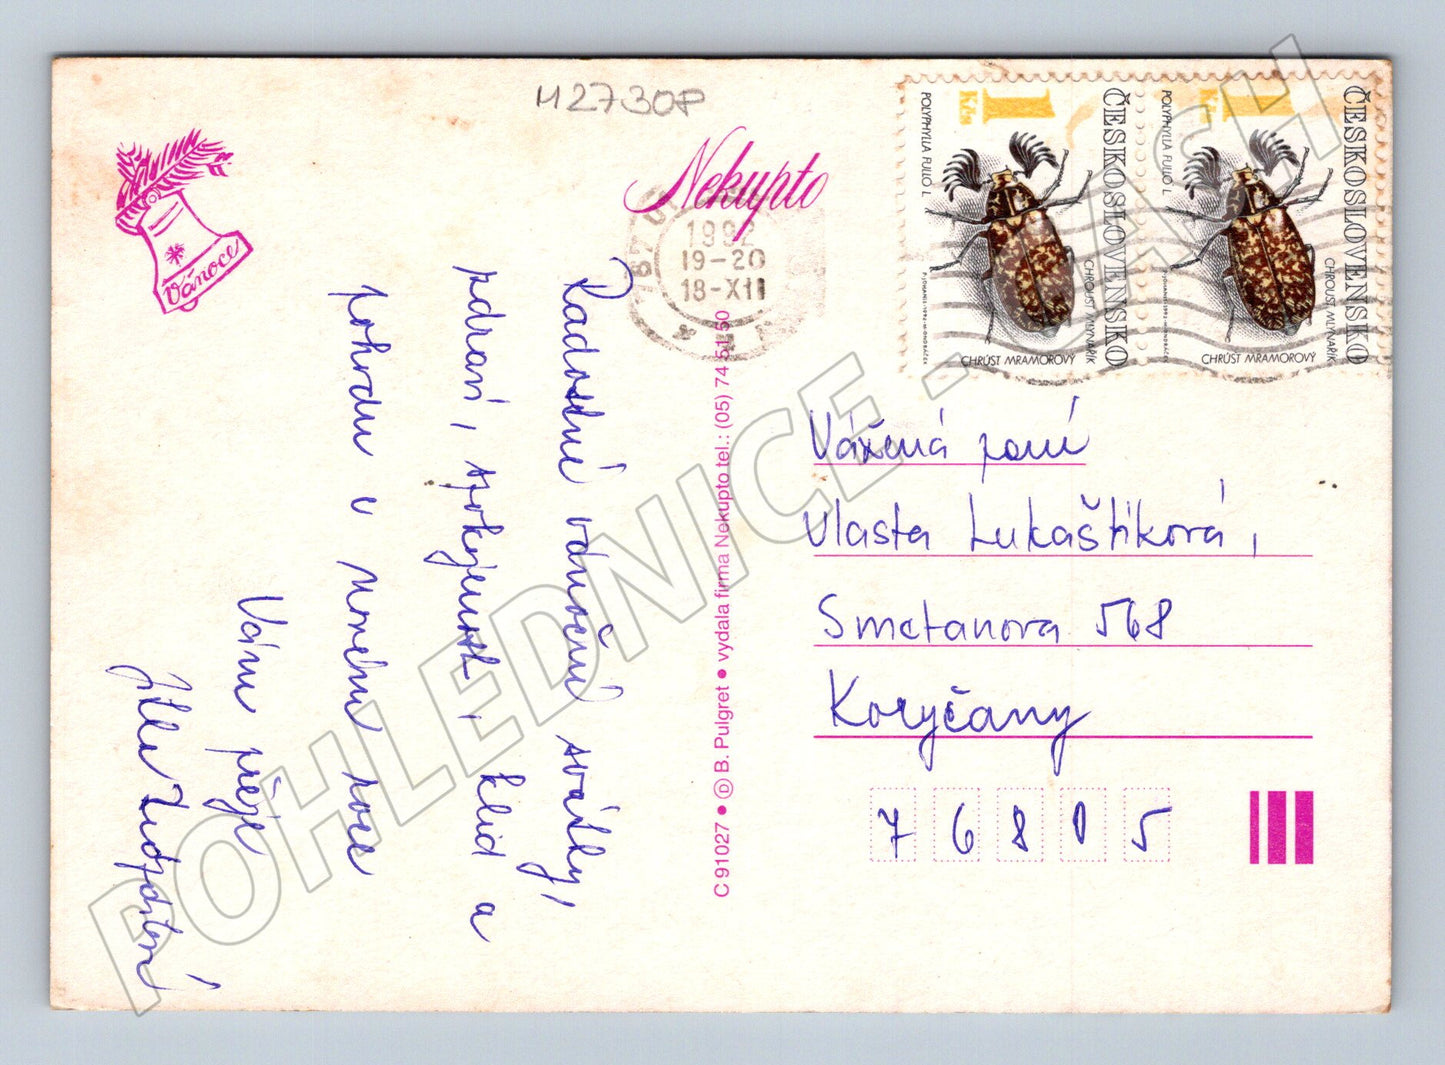 M2730P
Vánoce
Nekupto
1992
19-20
18-XII
1 Kčs
POLYPHYLLA FULLO L.
ČESKOSLOVENSKO
CHROUST MLYNAŘÍK
CHRÚST MRAMOROVÝ
1 Kčs
POLYPHYLLA FULLO L.
ČESKOSLOVENSKO
CHROUST MLYNAŘÍK
CHRÚST MRAMOROVÝ
Radostné vánoční svátky,
zdraví, spokojenost, klid a
pohodu v novém roce
Vám přeje
C 91027 • Ⓓ B. Pulgret • vydala firma Nekupto tel.: (05) 74 51 50
Vážená paní
Vlasta Lukaštíková,
Smetanova 568
Koryčany
76805
POHLEDNICE - CASH